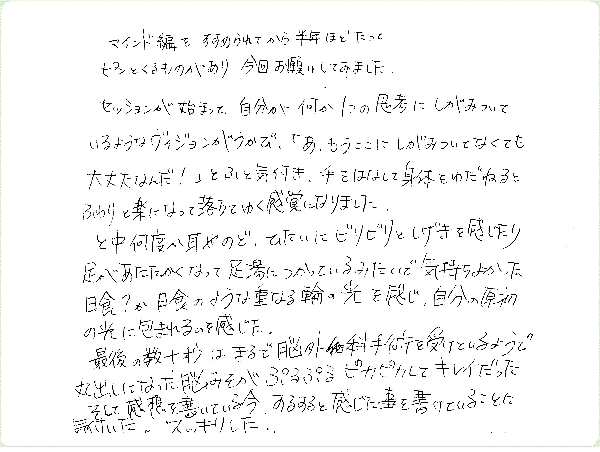 マインド編を すすめられてから半年ほどたって
ピンとくるものがあり 今回お願いしてみました。
セッションが始まって、自分が何か1つの思考にしがみついて
いるようなヴィジョンがうかび、「あ、もうここにしがみついてなくても
大丈夫なんだ！」とふと気付き、手をはなして身体をゆだねると
ふわりと楽になって落ちてゆく感覚になりました。
と中何度か耳やのど、ひたいにビリビリとしげきを感じたり
足があたたかくなって足湯につかっているみたいで気持ちよかった
日食？か月食のような重なる輪の光を感じ、自分の原初
の光に包まれるのを感じた。
最後の数十秒はまるで脳外科手術を受けているようで
丸出しになった脳みそがぷるぷるピカピカしてキレイだった
そして感想を書いている今、するすると感じた事を書けていることに
気付いた。スッキリした。